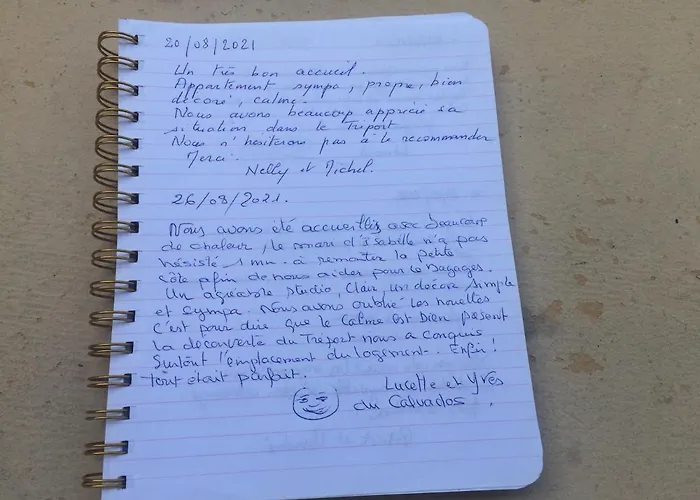 20/08/2021
Un très bon accueil.
Appartement sympa, propre, bien
décoré, calme.
Nous avons beaucoup apprécié sa
situation dans le Tréport
Nous n'hesiterons pas à le recommander
Merci.
Nelly et Michel.
26/08/2021.
Nous avons été accueillis avec beaucoup
de chaleur, le mari d'Isabelle n'a pas
hésité 1 mn. à remonter la petite
côte afin de nous aider pour le Bagages.
Un agréable studio, Clair, un décore simple
et sympa. Nous avons oublié les mouettes
C'est pour dire que le calme est bien présent
la découverte du Tréport nous a conquis
Surtout l'emplacement du logement. Enfin!
tout était parfait.
Lucette et Yves
du Calvados.